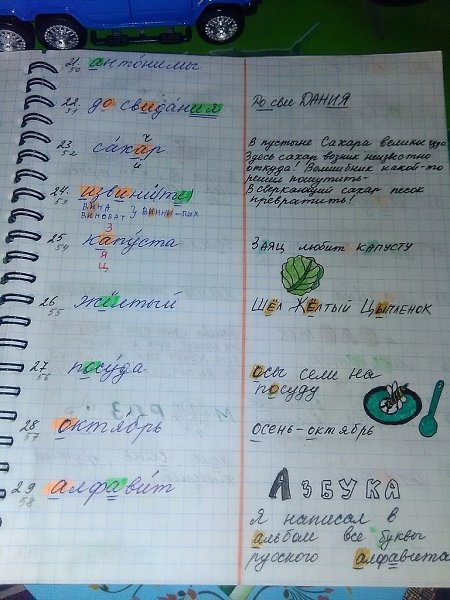 21 антонимы
50
22. до свидания До сви ДАНИЯ
51
23 ч
сахар
52 й
В пустыне Сахара велико чудо.
Здесь сахар возник неизвестно
откуда! Волшебник какой-то
решил пошутить-
В сверкающий сахар песок
превратить!
24. извини(те)
53 вина
виноват } винни-пых
25 З
капуста Заяц любит капусту
54 Я
Ц
26 жёлтый Шёл Жёлтый Цыпленок
55
27 посуда Осы сели на
56 посуду
28 октябрь Осень-октябрь
57
29 алфавит АЗБУКА
58
Я написал в
альбом все буквы
русского алфавита